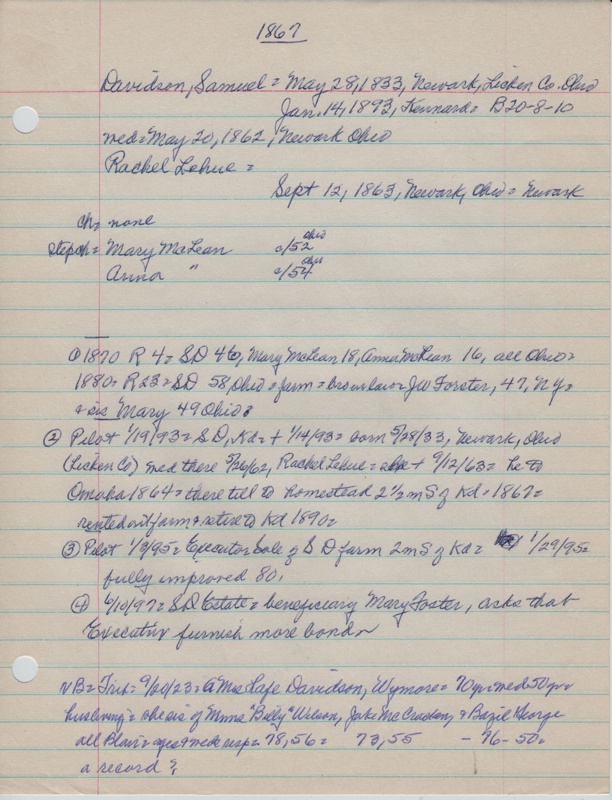 1867
Davidson, Samuel = May 28, 1833, Newark, Licken Co. Ohio
Jan. 14, 1893, Kennard = B20-8-10
med = May 20, 1862, Newark Ohio
Rachel Lehue =
Sept 12, 1863, Newark, Ohio = Newark
ch = none
stepch = Mary McLean c/52 Ohio
Anna " c/54 Ohio
① 1870 R 4 = SD 46, Mary McLean 18, Anna McLean 16, all Ohio =
1880 = R23 = SD 58, Ohio = farm = broinlaw = JW Forster, 47, NY =
& sis Mary 49 Ohio =
② Pilot 1/19/93 = SD, Kd = + 1/14/93 = born 5/28/33, Newark, Ohio
(Licken Co) med there 5/26/62, Rachel Lehue = she + 9/12/63 = he to
Omaha 1864 = there till to homestead 2½ m S of Kd = 1867 =
rented out farm & retire to Kd 1890 =
③ Pilot 1/9/95 = Executor Sale of S D farm 2 m S of Kd = 1/29/95 =
fully improved 80,
④ 6/10/97 = SD Estate = beneficiary Mary Foster, asks that
Executor furnish more bond
VB = Trib = 9/20/23 = A Mrs Lafe Davidson, Wymore = 70 yr = med 50 yr =
hus living = she sis of Mmes "Billy" Wilson, Jake McCradon, & Bazil George
all Blair = ages & meds resp = 78, 56 = 73, 55 - 76 - 50 =
a record ?